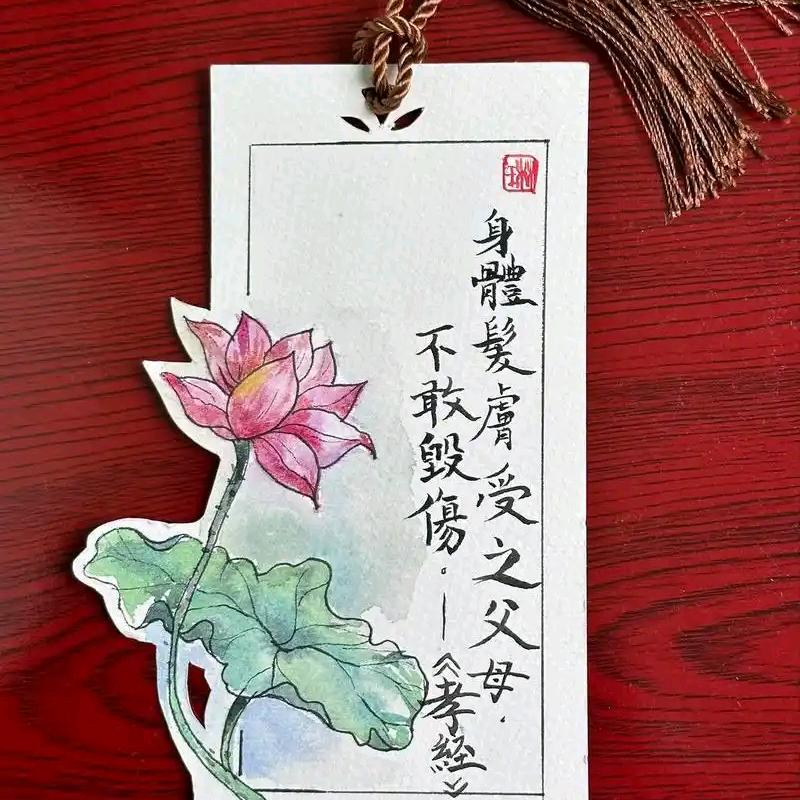 身體髮膚受之父母.
不敢毀傷。—《孝経》